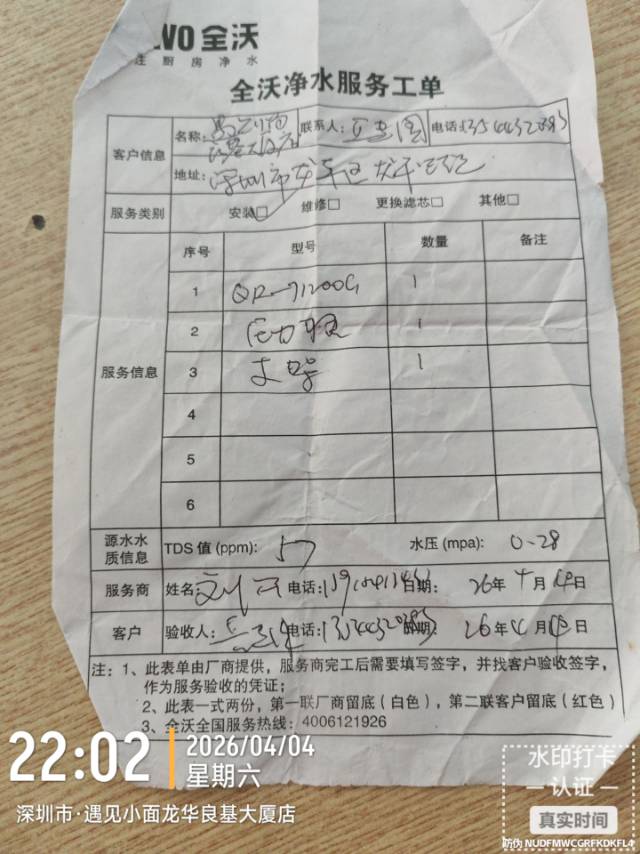 VO全沃
注厨房净水
全沃净水服务工单
客户信息
名称:
联系人:
电话: 13544320383
地址: 深圳市龙华区
服务类别
安装□ 维修□ 更换滤芯□ 其他□
服务信息
序号 型号 数量 备注
1 QR-71200G 1
2 压力罐 1
3 支架 1
4
5
6
源水水质信息
TDS 值 (ppm): 57 水压 (mpa): 0-28
服务商 姓名: 电话: 日期: 26年4月4日
客户 验收人: 电话: 13544320383 日期: 26年4月4日
注: 1、此表单由厂商提供，服务商完工后需要填写签字，并找客户验收签字，
作为服务验收的凭证；
2、此表一式两份，第一联厂商留底（白色），第二联客户留底（红色）
3、全沃全国服务热线: 4006121926
22:02
2026/04/04
星期六
深圳市·遇见小面龙华良基大厦店
水印打卡
认证
真实时间
防伪 NUDFMWCGRFKDKFL4